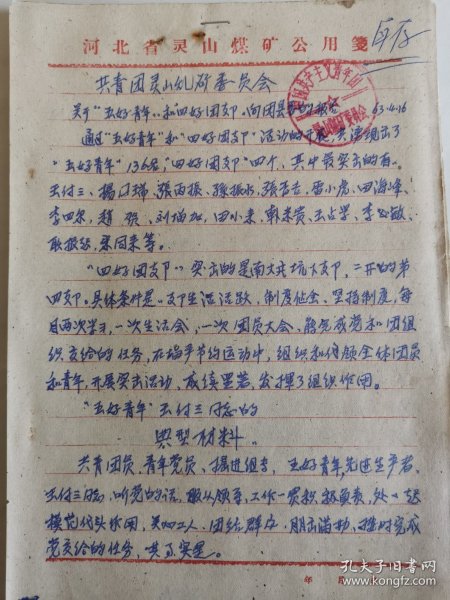 河北省灵山煤矿公用笺
存
共青团灵山礼矿委员会
关于"五好青年"和"四好团支部"向团县委的报告 63.4.16
通过"五好青年"和"四好团支部"活动的开展,共涌现出了
"五好青年"136名,"四好团支部"四个,其中最突出的有。
王付三、杨口瑞、张丙振、张振水、张吉去、雷小虎、田海峰、
李四尔、赵、刘伯加、田小来、韩来贵、王占学、李敏、
耿振、来同来等。
"四好团支部",突出的是南大井坑下支部,二井的第
四支部。具体条件是:支部生活活跃,制度健全,坚持制度,每
月两次学习,一次生活会,一次团员大会,能完成党和团组
织交给的任务,在增产节约运动中,组织和带领全体团员
和青年,开展突击活动,成绩显著,发挥了组织作用。
"五好青年"王付三同志的
典型材料。
共青团员、青年党员、掘进组长、五好青年、先进生产者,
王付三同志,听党的话,服从领导,工作一贯积极负责,处处起
模范代头作用,关心工人,团结群众,朋互满勤,按时完成
党交给的任务,其事实是。
年 月
孔夫子旧书网
book.kongfz.com